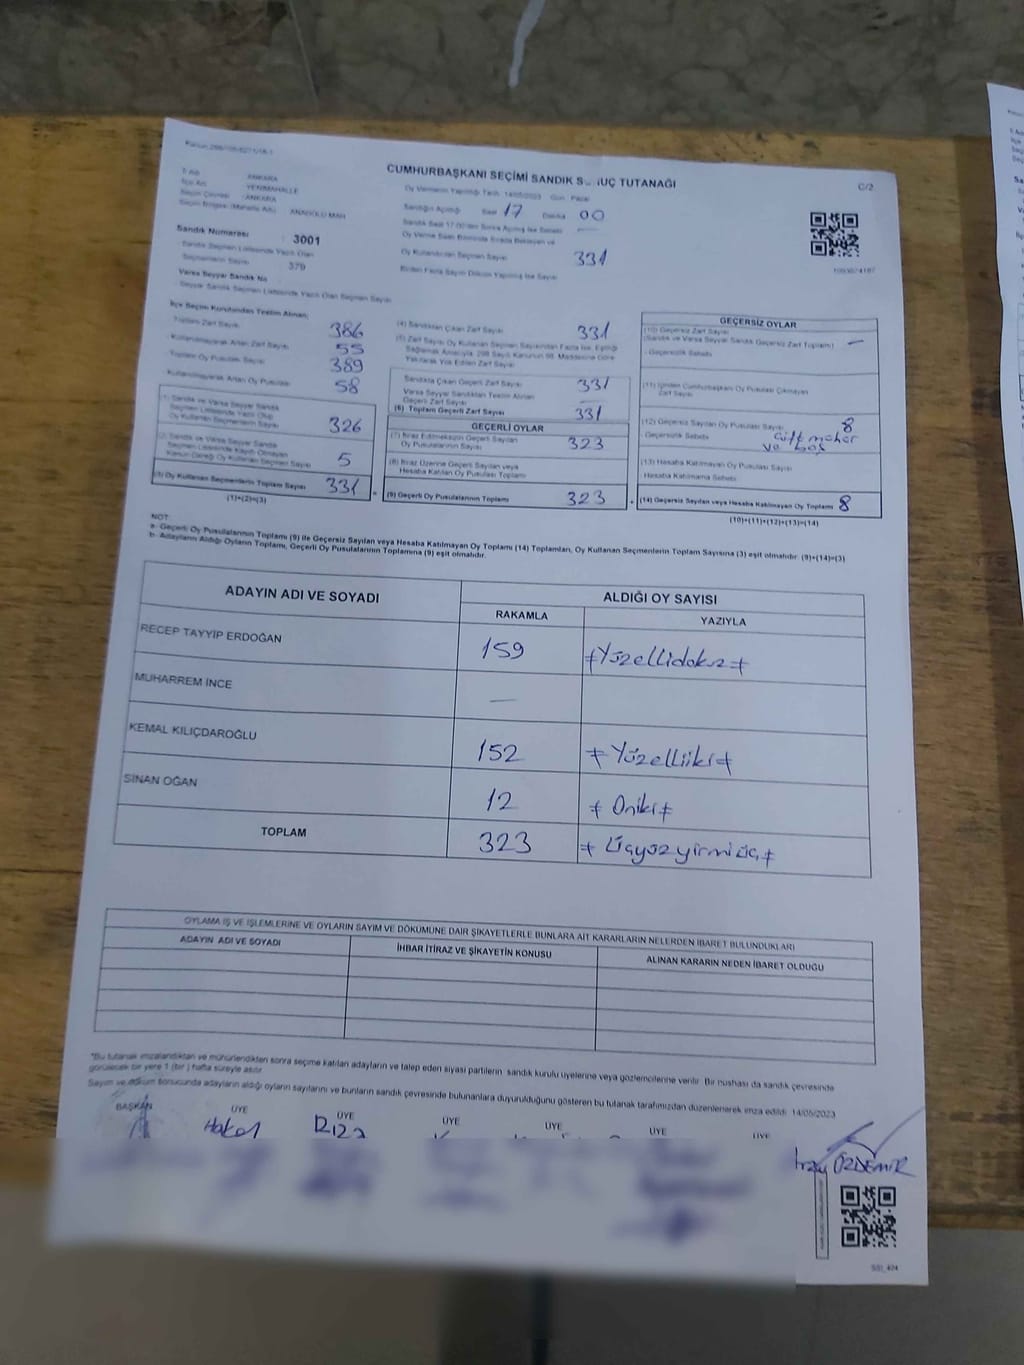 CUMHURBAŞKANI SEÇİMİ SANDIK S UÇ TUTANAĞI
C/2
İl Adı : ANKARA
İlçe Adı : YENİMAHALLE
Seçim Çevresi : ANKARA
ANADOLU MAH
Oy Vermenin Yapıldığı Tarih: 14/05/2023 Gün: Pazar
Sandığın Açıldığı Saat 17 Dakika 00
Sandık Numarası : 3001
Sandık Seçmen Listesinde Yazılı Olan
Seçmenlerin Sayısı 379
Varsa Seyyar Sandık No
Seyyar Sandık Seçmen Listesinde Yazılı Olan Seçmen Sayısı
Oy Kullandırılan Seçmen Sayısı 331
Birden Fazla Sayım Döküm Yapılmış İse Sayısı
İlçe Seçim Kurulundan Teslim Alınan;
Toplam Zarf Sayısı 386
Kullanılmayarak Artan Zarf Sayısı 55
Toplam Oy Pusulası Sayısı 389
Kullanılmayarak Artan Oy Pusulası 58
(1) Sandık ve Varsa Seyyar Sandık
Seçmen Listesinde Yazılı Olup
Oy Kullanan Seçmenlerin Sayısı 326
(2) Sandık ve Varsa Seyyar Sandık
Seçmen Listesinde Kayıtlı Olmayan
Kanun Gereği Oy Kullanan Seçmen Sayısı 5
(3) Oy Kullanan Seçmenlerin Toplam Sayısı 331
(1)+(2)=(3)
(4) Sandıktan Çıkan Zarf Sayısı 331
(5) Zarf Sayısı Oy Kullanan Seçmen Sayısından Fazla İse, Eşitliği
Sağlamak Amacıyla, 298 Sayılı Kanunun 98. Maddesine Göre
Yakılarak Yok Edilen Zarf Sayısı
Sandıkta Çıkan Geçerli Zarf Sayısı 331
Varsa Seyyar Sandıktan Teslim Alınan
Geçerli Zarf Sayısı
(6) Toplam Geçerli Zarf Sayısı 331
GEÇERLİ OYLAR
(7) İtiraz Edilmeksizin Geçerli Sayılan
Oy Pusulalarının Toplamı 323
(8) İtiraz Üzerine Geçerli Sayılan veya
Hesaba Katılan Oy Pusulası Toplamı
(9) Geçerli Oy Pusulalarının Toplamı 323
GEÇERSİZ OYLAR
(10) Geçersiz Zarf Sayısı
(Sandık ve Varsa Seyyar Sandık Geçersiz Zarf Toplamı) —
Geçersizlik Sebebi
(11) İçinden Cumhurbaşkanı Oy Pusulası Çıkmayan
Zarf Sayısı
(12) Geçersiz Sayılan Oy Pusulası Sayısı 8
Geçersizlik Sebebi Çift mühür
ve boş
(13) Hesaba Katılmayan Oy Pusulası Sayısı
Hesaba Katılmama Sebebi
(14) Geçersiz Sayılan veya Hesaba Katılmayan Oy Toplamı 8
(10)+(11)+(12)+(13)=(14)
NOT:
a- Geçerli Oy Pusulalarının Toplamı (9) ile Geçersiz Sayılan veya Hesaba Katılmayan Oy Toplamı (14) Toplamları, Oy Kullanan Seçmenlerin Toplam Sayısına (3) eşit olmalıdır. (9)+(14)=(3)
b- Adayların Aldığı Oyların Toplamı, Geçerli Oy Pusulalarının Toplamına (9) eşit olmalıdır.
ADAYIN ADI VE SOYADI
ALDIĞI OY SAYISI
RAKAMLA
YAZIYLA
RECEP TAYYİP ERDOĞAN 159 ≠Yüzellidokuz≠
MUHARREM İNCE —
KEMAL KILIÇDAROĞLU 152 ≠Yüzelliiki≠
SİNAN OĞAN 12 ≠Oniki≠
TOPLAM 323 ≠Üçyüzyirmiüç≠
OYLAMA İŞ VE İŞLEMLERİNE VE OYLARIN SAYIM VE DÖKÜMÜNE DAİR ŞİKAYETLERLE BUNLARA AİT KARARLARIN NELERDEN İBARET BULUNDUKLARI
ADAYIN ADI VE SOYADI
İHBAR İTİRAZ VE ŞİKAYETİN KONUSU
ALINAN KARARIN NEDEN İBARET OLDUĞU
*Bu tutanak imzalandıktan ve mühürlendikten sonra seçime katılan adayların ve talep eden siyasi partilerin sandık kurulu üyelerine veya gözlemcilerine verilir. Bir nüshası da sandık çevresinde
görülecek bir yere 1 (bir) hafta süreyle asılır.
Sayım ve döküm sonucunda adayların aldığı oyların sayılarını ve bunların sandık çevresinde bulunanlara duyurulduğunu gösteren bu tutanak tarafımızdan düzenlenerek imza edildi. 14/05/2023
BAŞKAN ÜYE ÜYE ÜYE ÜYE ÜYE ÜYE
ÖZDEMİR